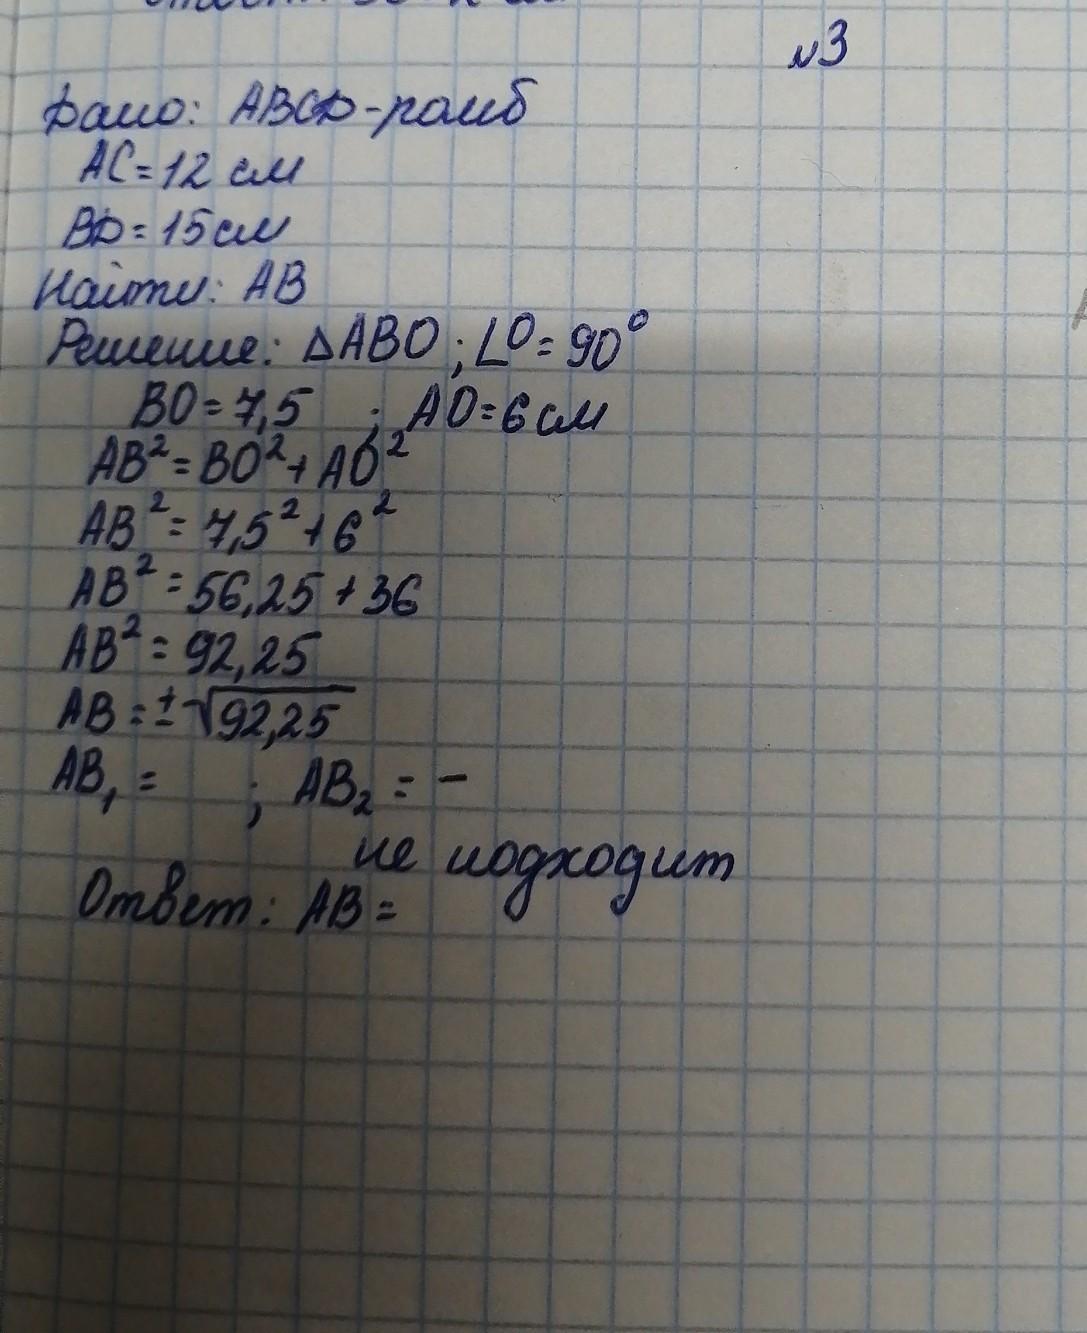 №3
Дано: ABCD-ромб
AC=12 см
BD=15см
Найти: AB
Решение: ∆ABO ; ∠O=90°
BO=7,5 ; AO=6см
AB²=BO²+AO²
AB²=7,5²+6²
AB²=56,25+36
AB²=92,25
AB=±√92,25
AB₁= ; AB₂=-
не подходит
Ответ: AB=